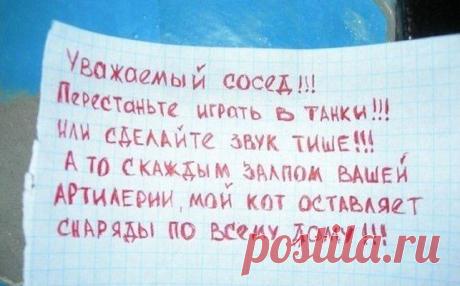 Уважаемый сосед!!!
Перестаньте играть в танки!!!
Или сделайте звук тише!!!
А то скаждым залпом вашей
артилерии, мой кот оставляет
снаряды по всему дому!!!
postila.ru